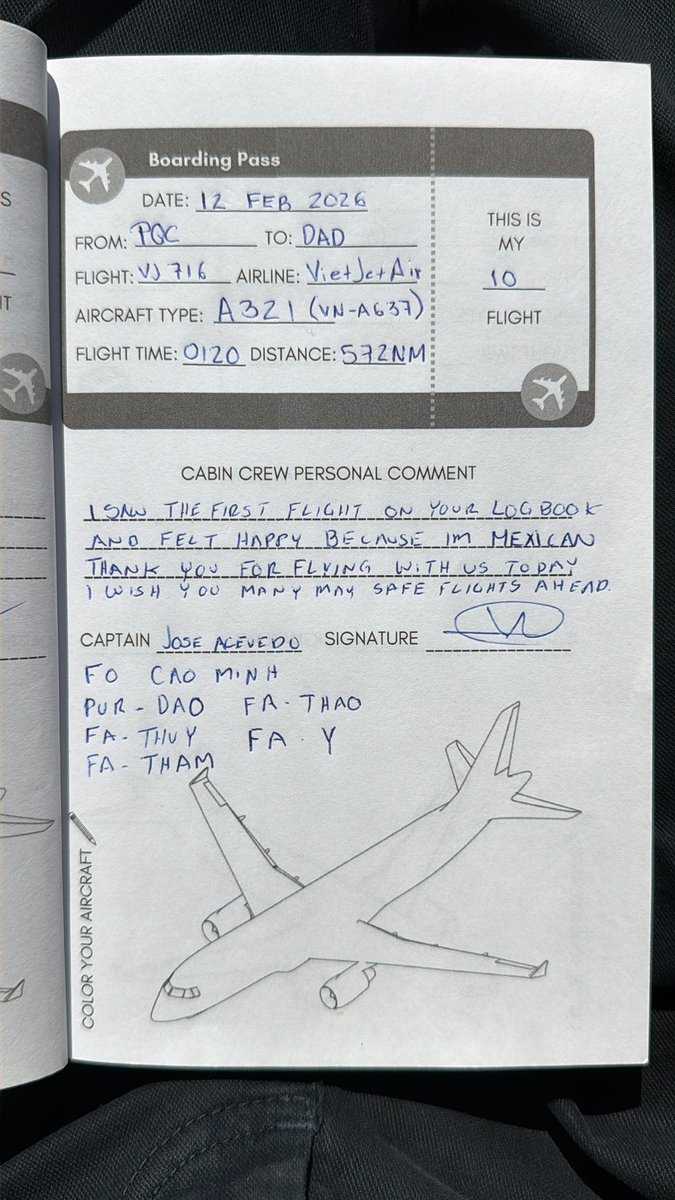 Boarding Pass
DATE: 12 FEB 2026
FROM: PQC TO: DAD
FLIGHT: VJ 716 AIRLINE: VietJetAir
AIRCRAFT TYPE: A321 (VN-A637)
FLIGHT TIME: 0120 DISTANCE: 572NM
THIS IS
MY
10
FLIGHT
CABIN CREW PERSONAL COMMENT
I SAW THE FIRST FLIGHT ON YOUR LOGBOOK
AND FELT HAPPY BECAUSE IM MEXICAN
THANK YOU FOR FLYING WITH US TODAY
I WISH YOU MANY MAY SAFE FLIGHTS AHEAD.
CAPTAIN JOSE ACEVEDO SIGNATURE
FO CAO MINH
PUR - DAO FA - THAO
FA - THUY FA - Y
FA - THAM
COLOR YOUR AIRCRAFT